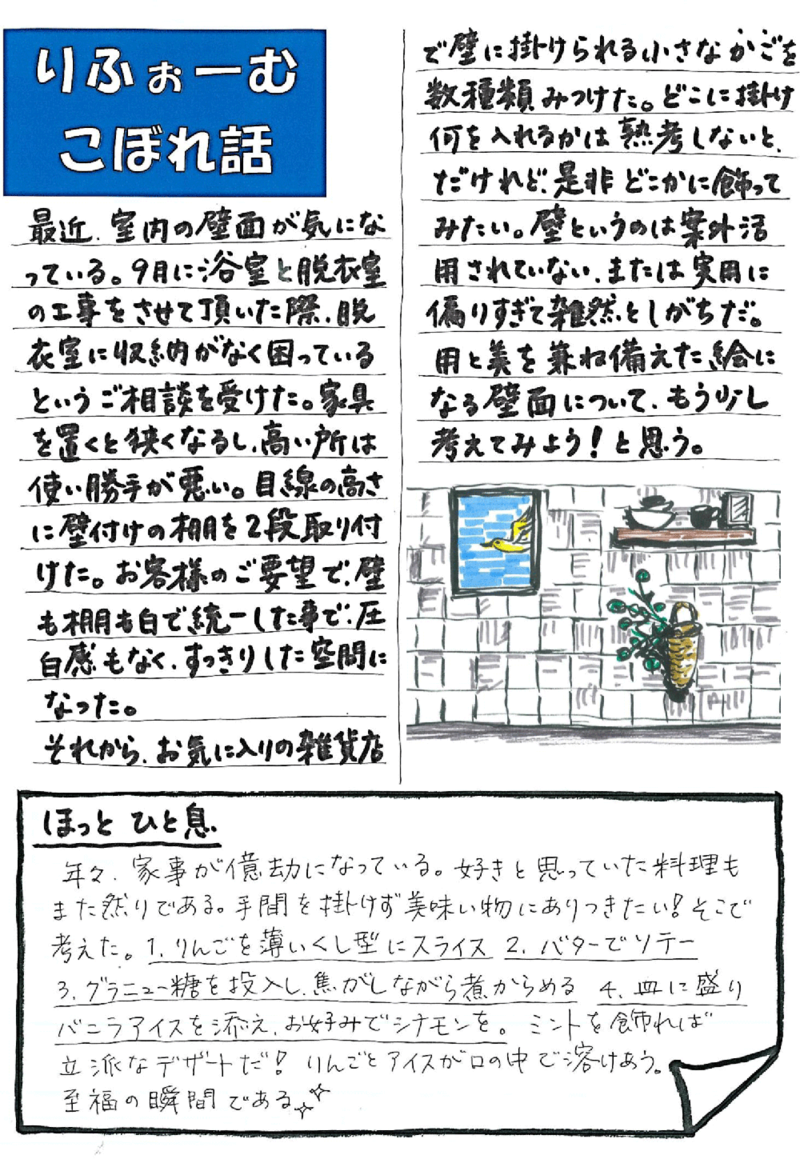 りふぉーむ
こぼれ話
最近、室内の壁面が気にな
っている。9月に浴室と脱衣室
の工事をさせて頂いた際、脱
衣室に収納がなく困っている
というご相談を受けた。家具
を置くと狭くなるし、高い所は
使い勝手が悪い。目線の高さ
に壁付けの棚を2段取り付
けた。お客様のご要望で、壁
も棚も白で統一した事で、圧
白感もなく、すっきりした空間に
なった。
それから、お気に入りの雑貨店
で壁に掛けられる小さなかごを
数種類みつけた。どこに掛け
何を入れるかは熟考しないと、
だけれど、是非どこかに飾って
みたい。壁というのは案外活
用されていない、または実用に
偏りすぎて雑然としがちだ。
用と美を兼ね備えた絵に
なる壁面について、もう少し
考えてみよう!と思う。
ほっと ひと息
年々、家事が億劫になっている。好きと思っていた料理も
また然りである。手間を掛けず美味い物にありつきたい!そこで
考えた。1、りんごを薄いくし型にスライス 2、バターでソテー
3、グラニュー糖を投入し、焦がしながら煮からめる 4、皿に盛り
バニラアイスを添え、お好みでシナモンを。ミントを飾れば
立派なデザートだ!りんごとアイスが口の中で溶けあう。
至福の瞬間である